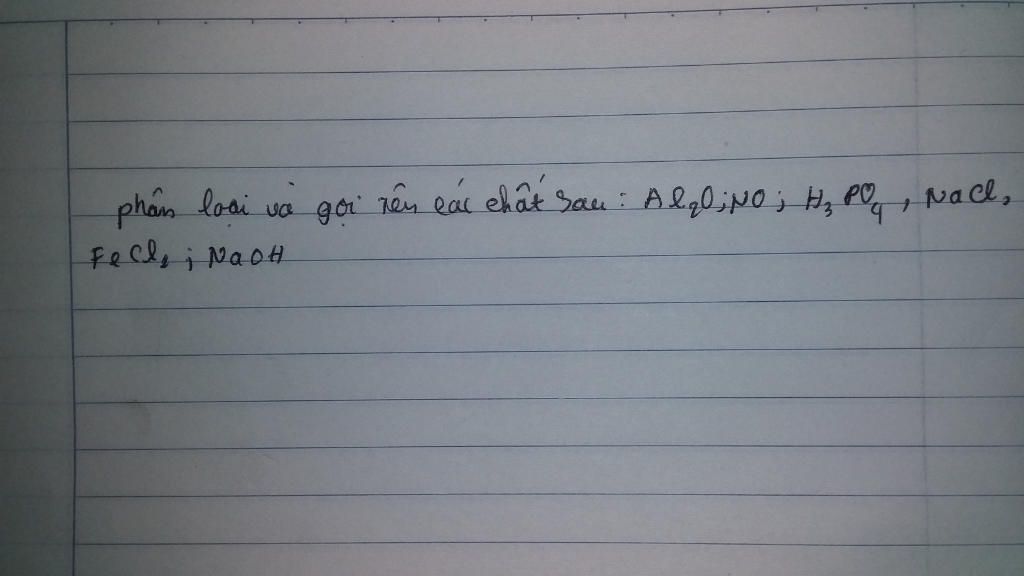 phân loại và gọi tên các chất sau: Al₂O; NO; H₃PO₄, NaCl,
FeCl₂; NaOH